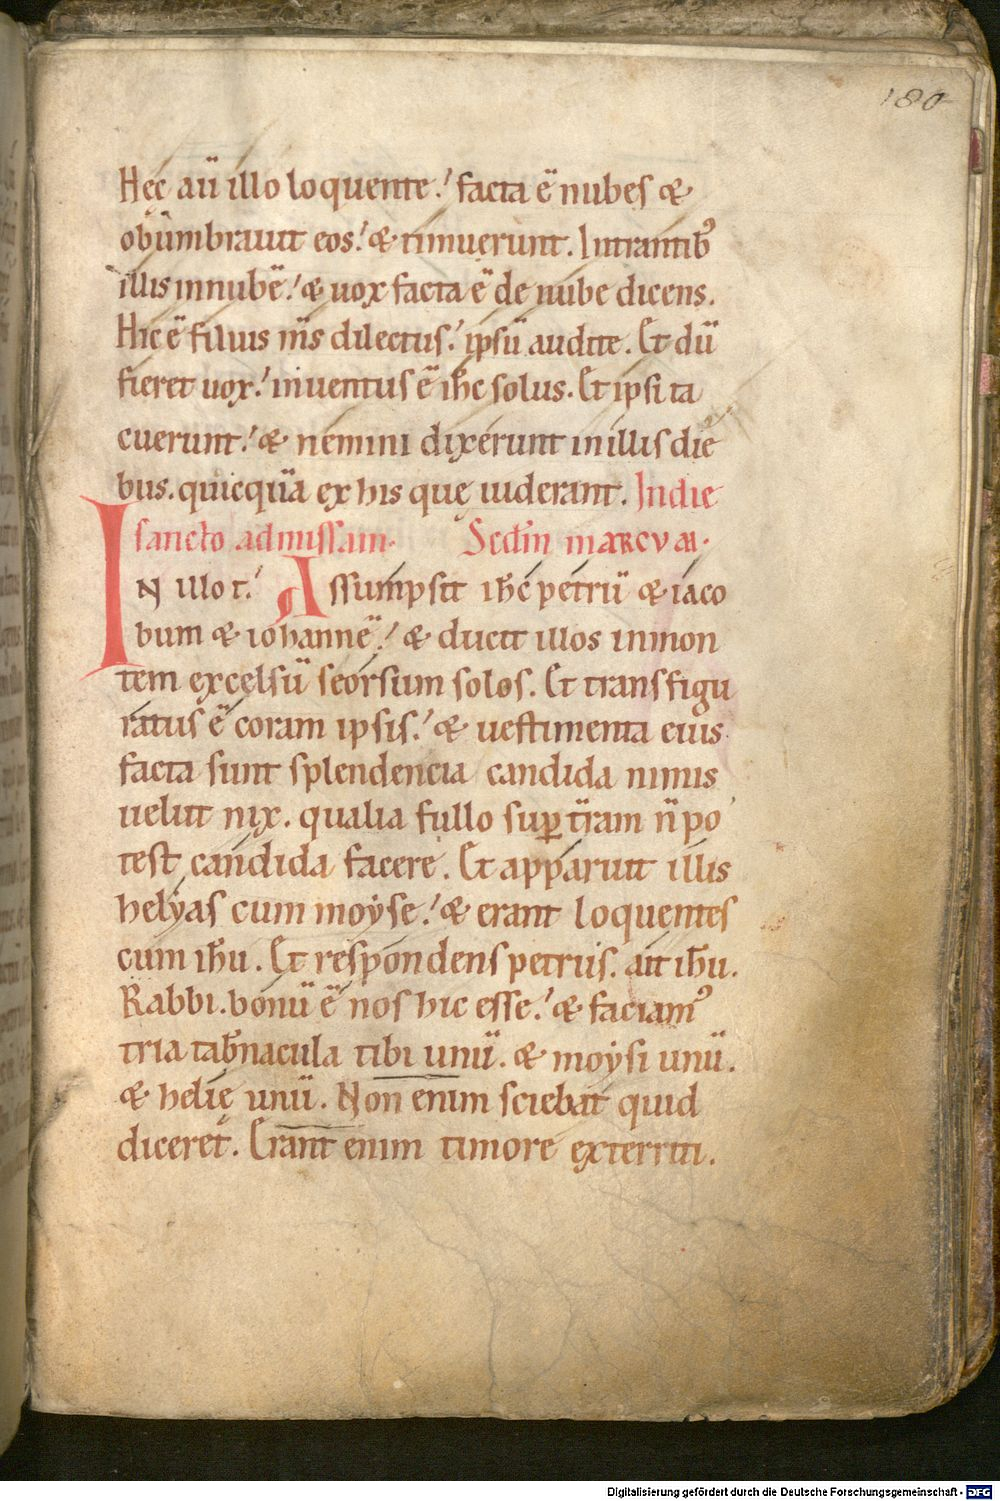 180
Hęc aū illo loquente. facta ē nubes &
obūmbrauit eos. & timuerunt. Intrantib᾽
illis innubē. & uox facta ē de nube dicens.
Hic ē filius m̄s dilectus. ipsū audite. Et dū
fieret uox. inuentus ē ih̄c solus. Et ipsi ta
cuerunt. & nemini dixerunt inillis die
bus. quicquā ex his quę uiderant. Indie
sancto admissam. Secd̄m marcvm.
IN illo t̄. Assumpsit ih̄c petrū & iaco
bum & iohannē. & ducit illos inmon
tem excelsū seorsum solos. Et transfigu
ratus ē coram ipsis. & uestimenta eius
facta sunt splendencia candida nimis
uelut nix. qualia fullo sup̱ t̄ram n̄ po
test candida facere. Et apparuit illis
helyas cum moyse. & erant loquentes
cum ih̄u. Et respondens petrus. ait ih̄u.
Rabbi. bonū ē nos hic esse. & faciam᾽
tria tab̄nacula tibi unū. & moysi unū.
& helię unū. Non enim sciebat quid
diceret. Erant enim timore exterriti.
Digitalisierung gefördert durch die Deutsche Forschungsgemeinschaft - DFG